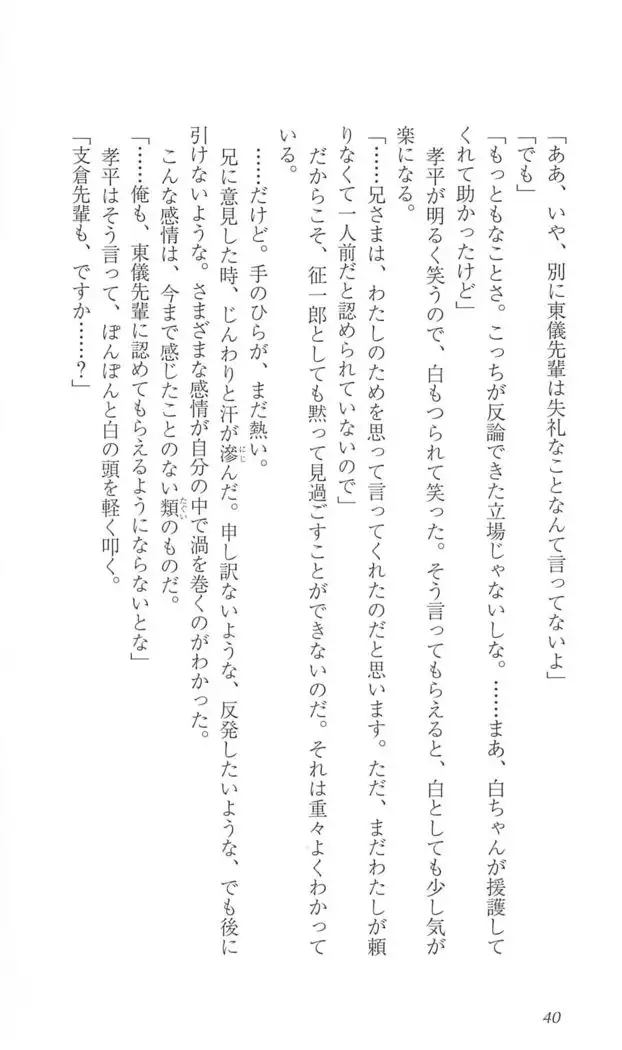 「ああ、いや、別に東儀先輩は失礼なことなんて言ってないよ」
「でも」
「もっともなことさ。こっちが反論できた立場じゃないしな。……まあ、白ちゃんが援護して
くれて助かったけど」
孝平が明るく笑うので、白もつられて笑った。そう言ってもらえると、白としても少し気が
楽になる。
「……兄さまは、わたしのためを思って言ってくれたのだと思います。ただ、まだわたしが頼
りなくて一人前だと認められていないので」
だからこそ、征一郎としても黙って見過ごすことができないのだ。それは重々よくわかって
いる。
……だけど。手のひらが、まだ熱い。
兄に意見した時、じんわりと汗が滲んだ。申し訳ないような、反発したいような、でも後に
引けないような。さまざまな感情が自分の中で渦を巻くのがわかった。
こんな感情は、今まで感じたことのない類のものだ。
「……俺も、東儀先輩に認めてもらえるようにならないとな」
孝平はそう言って、ぽんぽんと白の頭を軽く叩く。
「支倉先輩も、ですか……？」
40